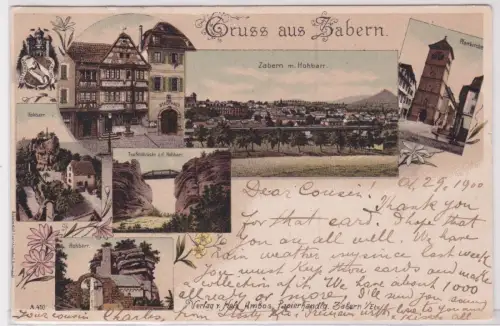 Gruss aus Zabern.
Pfarrkirche
Zabern m. Hohbarr.
Hohbarr.
Teufelsbrücke a.d. Hohbarr.
Hohbarr.
Oct. 29, 1900
Dear Cousin! Thank you
for that card. I hope that
you are all well. We have
rain weather since last week
You must keep those cards and make
a collection of it. We have about 1000
already or more. I'll send you some
A. 457
Verlag v. Papierhandlg. Zabern i. Els.
Your cousin Charles,